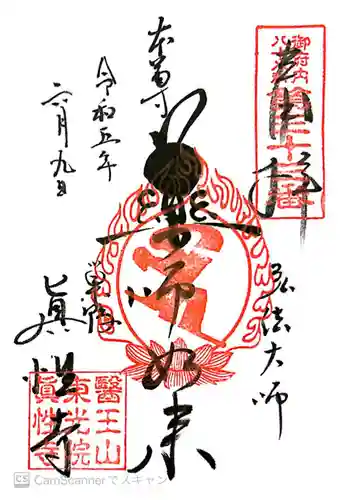 奉拝
御府内
八十八所
第三十三番
本尊
薬師如来
弘法大師
令和五年
六月九日
眞性寺
醫王山
東光院
眞性寺
CS CamScannerでスキャン